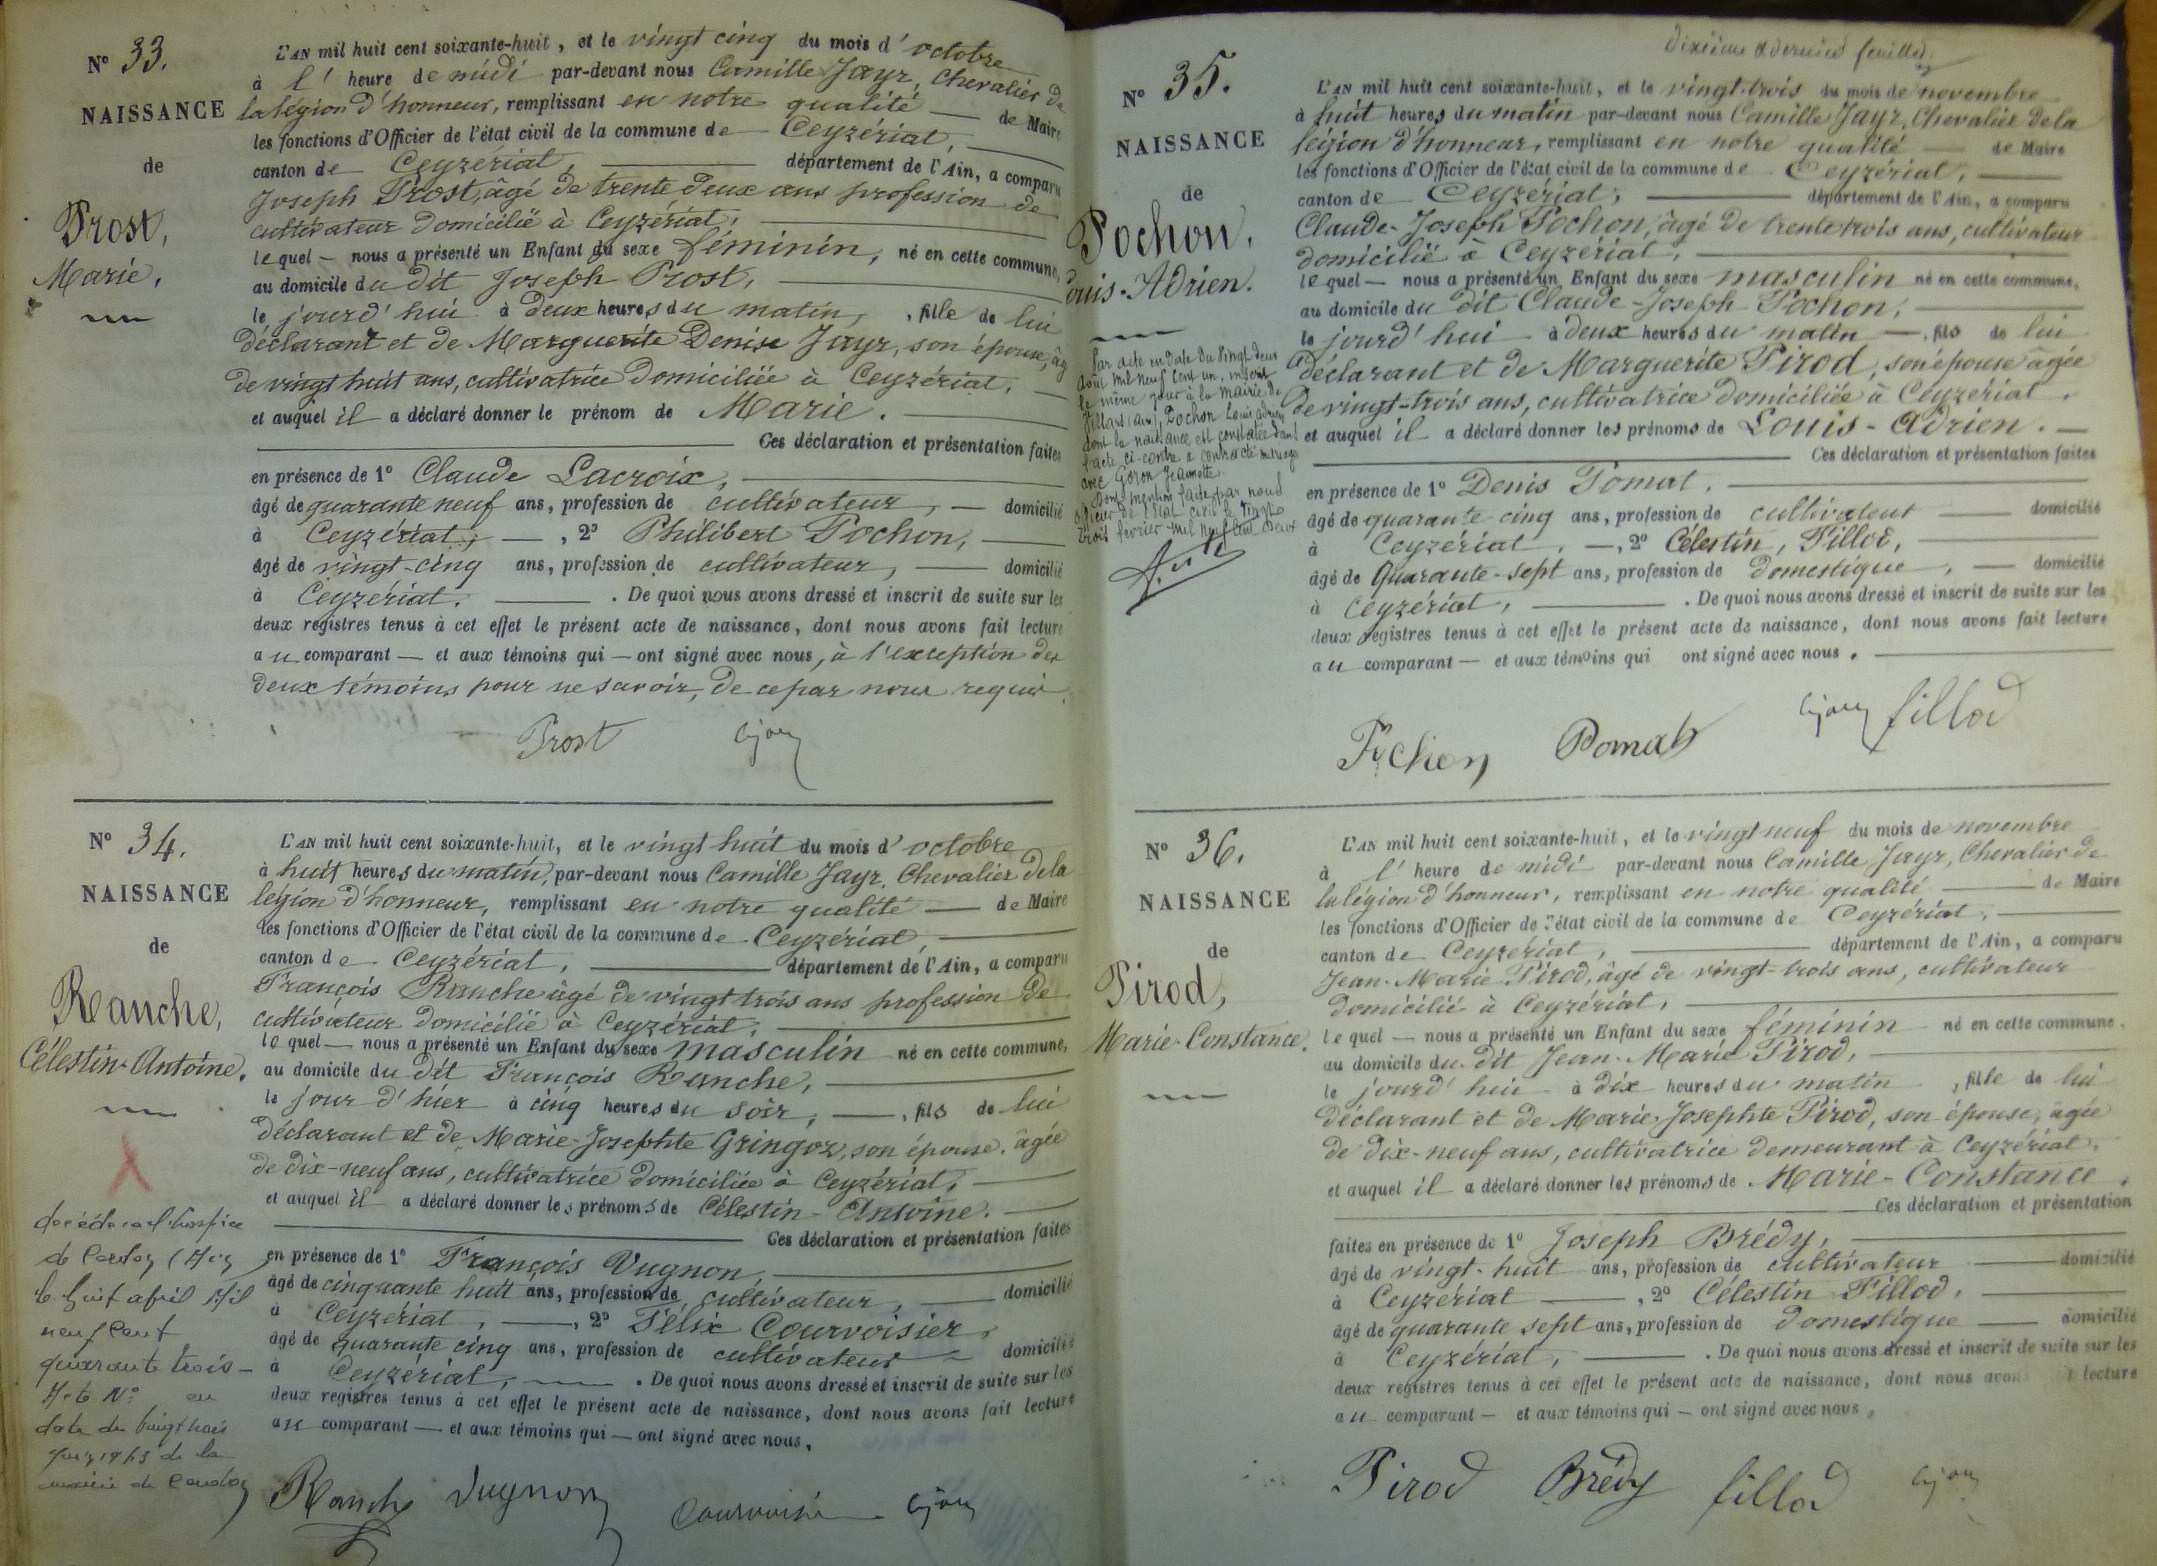 Nº 33.
NAISSANCE
de
Prost,
Marie.
L'AN mil huit cent soixante-huit, et le vingt cinq du mois d'octobre
à l'heure de midi par-devant nous Camille Jayr, Chevalier de
la légion d'honneur, remplissant en notre qualité — de Maire
les fonctions d'Officier de l'état civil de la commune de Ceyzériat,
canton de Ceyzériat, département de l'Ain, a comparu
Joseph Prost, âgé de trente deux ans profession de
cultivateur domicilié à Ceyzériat,
lequel — nous a présenté un Enfant du sexe féminin, né en cette commune,
au domicile du dit Joseph Prost,
le jourd'hui à deux heures du matin, , fille de lui
déclarant et de Marguerite Denise Jayr, son épouse, âg
de vingt huit ans, cultivatrice domiciliée à Ceyzériat,
et auquel il a déclaré donner le prénom de Marie.
Ces déclaration et présentation faites
en présence de 1º Claude Lacroix,
âgé de quarante neuf ans, profession de cultivateur, — domicilié
à Ceyzériat, — , 2º Philibert Pochon,
âgé de vingt-cinq ans, profession de cultivateur, — domicilié
à Ceyzériat. — . De quoi nous avons dressé et inscrit de suite sur les
deux registres tenus à cet effet le présent acte de naissance, dont nous avons fait lecture
au comparant — et aux témoins qui — ont signé avec nous, à l'exception des
deux témoins pour ne savoir, de ce par nous requis.
Prost
Nº 34.
NAISSANCE
de
Ranche,
Célestin-Antoine.
L'AN mil huit cent soixante-huit, et le vingt huit du mois d'octobre
à huit heures du matin, par-devant nous Camille Jayr, Chevalier de la
légion d'honneur, remplissant en notre qualité — de Maire
les fonctions d'Officier de l'état civil de la commune de Ceyzériat,
canton de Ceyzériat, département de l'Ain, a comparu
François Ranche âgé de vingt trois ans profession de
cultivateur domicilié à Ceyzériat,
lequel — nous a présenté un Enfant du sexe masculin né en cette commune,
au domicile du dit François Ranche,
le jour d'hier à cinq heures du soir, — , fils de lui
déclarant et de Marie-Josephte Gringoz, son épouse, âgée
de dix-neuf ans, cultivatrice domiciliée à Ceyzériat,
et auquel il a déclaré donner les prénoms de Célestin-Antoine.
Ces déclaration et présentation faites
en présence de 1º François Vugnon,
âgé de cinquante huit ans, profession de cultivateur, — domicilié
à Ceyzériat, — , 2º Félix Courvoisier,
âgé de quarante cinq ans, profession de cultivateur — domicilié
à Ceyzériat, — . De quoi nous avons dressé et inscrit de suite sur les
deux registres tenus à cet effet le présent acte de naissance, dont nous avons fait lecture
au comparant — et aux témoins qui — ont signé avec nous,
décédé à l'hospice
de
le huit avril Mil
neuf Cent
quarante trois —
Acte Nº en
date du
de la
mairie de
Ranche Vugnon Courvoisié
dixième & dernier feuillet.
Nº 35.
NAISSANCE
de
Pochon,
Louis-Adrien.
Par acte en date du vingt deux
août mil neuf cent un, inscrit
le même jour à la mairie de
Jillard (Ain), Pochon Louis Adrien
dont la naissance est constatée dans
l'acte ci-contre a contracté mariage
avec Goron Jeannette
Dont mention faite par nous
officier de l'état civil le vingt
trois février mil neuf cent deux
L'AN mil huit cent soixante-huit, et le vingt-trois du mois de novembre
à huit heures du matin par-devant nous Camille Jayr, Chevalier de la
légion d'honneur, remplissant en notre qualité — de Maire
les fonctions d'Officier de l'état civil de la commune de Ceyzériat,
canton de Ceyzériat, département de l'Ain, a comparu
Claude-Joseph Pochon, âgé de trente trois ans, cultivateur
domicilié à Ceyzériat,
lequel — nous a présenté un Enfant du sexe masculin né en cette commune,
au domicile du dit Claude-Joseph Pochon,
le jourd'hui à deux heures du matin — , fils de lui
déclarant et de Marguerite Pirod, son épouse âgée
de vingt-trois ans, cultivatrice domiciliée à Ceyzériat,
et auquel il a déclaré donner les prénoms de Louis-Adrien. —
Ces déclaration et présentation faites
en présence de 1º Denis Pomat,
âgé de quarante cinq ans, profession de cultivateur — domicilié
à Ceyzériat, —, 2º Célestin, Fillod,
âgé de Quarante-sept ans, profession de domestique, — domicilié
à Ceyzériat, — . De quoi nous avons dressé et inscrit de suite sur les
deux registres tenus à cet effet le présent acte de naissance, dont nous avons fait lecture
au comparant — et aux témoins qui ont signé avec nous.
Pochon Pomat fillod
Nº 36.
NAISSANCE
de
Pirod,
Marie-Constance.
L'AN mil huit cent soixante-huit, et le vingt neuf du mois de novembre
à l'heure de midi par-devant nous Camille Jayr, Chevalier de
la légion d'honneur, remplissant en notre qualité — de Maire
les fonctions d'Officier de l'état civil de la commune de Ceyzériat,
canton de Ceyzériat, département de l'Ain, a comparu
Jean-Marie Pirod, âgé de vingt-trois ans, cultivateur
domicilié à Ceyzériat,
lequel — nous a présenté un Enfant du sexe féminin né en cette commune,
au domicile du dit Jean-Marie Pirod,
le jourd'hui à dix heures du matin , fille de lui
déclarant et de Marie-Josephte Pirod, son épouse, âgée
de dix-neuf ans, cultivatrice demeurant à Ceyzériat,
et auquel il a déclaré donner les prénoms de Marie-Constance.
Ces déclaration et présentation
faites en présence de 1º Joseph Brédy,
âgé de vingt-huit ans, profession de cultivateur — domicilié
à Ceyzériat — , 2º Célestin Fillod,
âgé de quarante sept ans, profession de domestique — domicilié
à Ceyzériat, — . De quoi nous avons dressé et inscrit de suite sur les
deux registres tenus à cet effet le présent acte de naissance, dont nous avons lecture
au comparant — et aux témoins qui — ont signé avec nous,
Pirod Brédy fillod